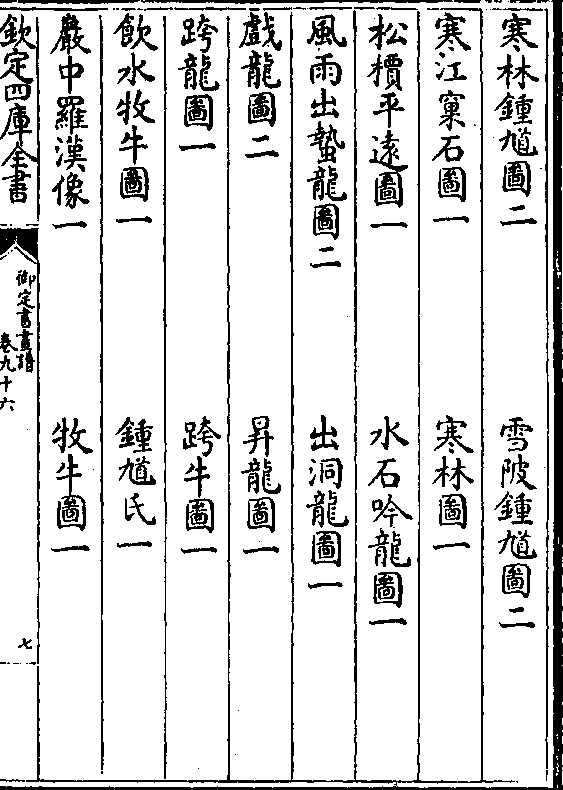 寒林鍾馗圖二 雪陂鍾馗圖二
寒江窠石圖一 寒林圖一
松檟平遠圖一 水石吟龍圖一
風雨出蟄龍圖二 出洞龍圖一
戲龍圖二 昇龍圖一
跨龍圖一 跨牛圖一
飲水牧牛圖一 鍾馗氏一
巖中羅漢像一 牧牛圖一
欽定四庫全書
御定書畫譜
卷九十六
七